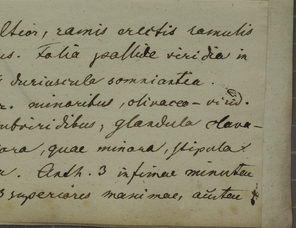 ltior, ramis erectis ramulis
us. Folia pallide viridia in
duriuscula somniantia.
r. minoribus, olivaceo-virid.
ubviridibus, glandula clava-
ora, quae minora, stipulax
u. Anth. 3 infimae minutae
3 superiores maximae, autem